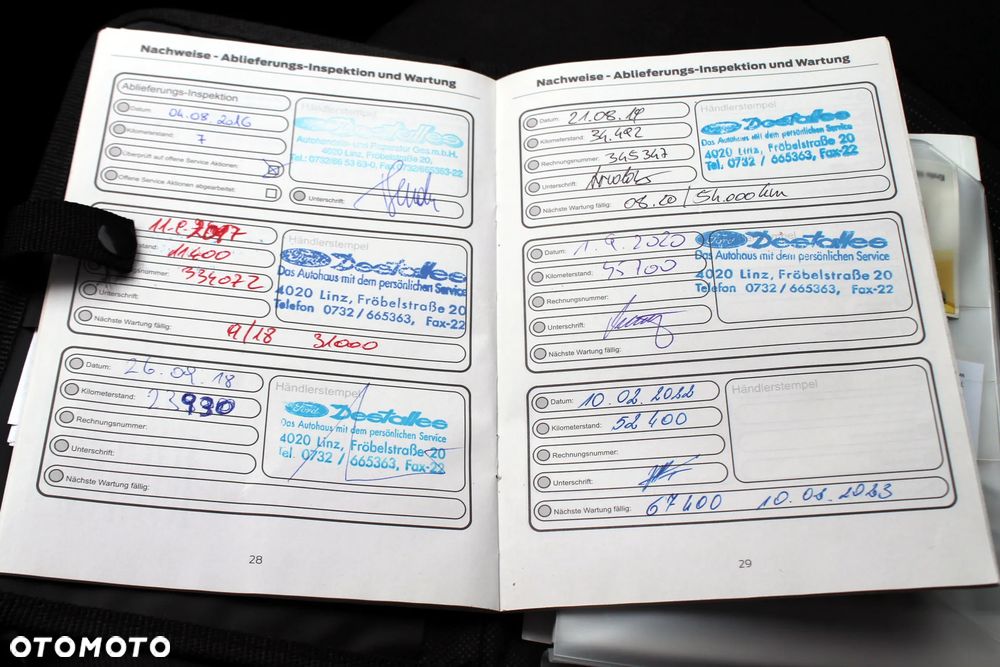 Nachweise - Ablieferungs-Inspektion und Wartung
Ablieferungs-Inspektion
Datum: 04.08.2016
Kilometerstand: 7
Überprüft auf offene Service Aktionen:
Offene Service Aktionen abgearbeitet:
Händlerstempel
Destallee
Autohandels- und Reparatur Ges.m.b.H.
4020 Linz, Fröbelstraße 20,
Tel.: 0732/66 53 63-0, Fax
Unterschrift:
2017
stand: 11400
snummer: 334072
Unterschrift:
Nächste Wartung fällig: 9/18 31000
Händlerstempel
Ford Destallee
Das Autohaus mit dem persönlichen Service
4020 Linz, Fröbelstraße 20
Telefon 0732/665363, Fax-22
Datum: 26.09.18
Kilometerstand: 23930
Rechnungsnummer:
Unterschrift:
Nächste Wartung fällig:
Händlerstempel
Ford Destallee
Das Autohaus mit dem persönlichen Service
4020 Linz, Fröbelstraße 20
Tel. 0732 / 665363, Fax-22
28
Nachweise - Ablieferungs-Inspektion und Wartung
Datum: 21.08.19
Kilometerstand: 34.492
Rechnungsnummer: 345347
Unterschrift:
Nächste Wartung fällig: 08.20/54.000km
Händlerstempel
Ford Destallee
Das Autohaus mit dem persönlichen Service
4020 Linz, Fröbelstraße 20
Tel. 0732 / 665363, Fax-22
Datum: 1.9.2020
Kilometerstand: 45700
Rechnungsnummer:
Unterschrift:
Nächste Wartung fällig:
Händlerstempel
Ford Destallee
Das Autohaus mit dem persönlichen Service
4020 Linz, Fröbelstraße 20
Telefon 0732 / 665363, Fax-22
Datum: 10.02.2022
Kilometerstand: 52400
Rechnungsnummer:
Unterschrift:
Nächste Wartung fällig: 67400 10.02.2023
Händlerstempel
29
OTOMOTO